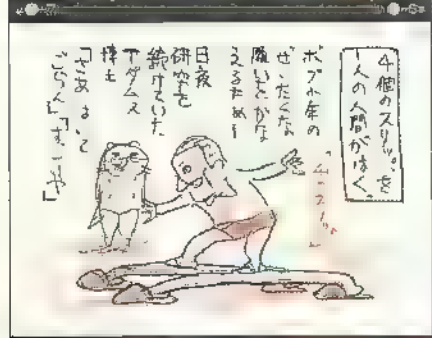 4個のスリッパを
1人の人間がはく。
ボブ少年の
ぜいたくな
願いをかな
えるため!
日夜
研究を
続けていた
アダムス
博士
「さあはいて
ごらん」「すっごーい」